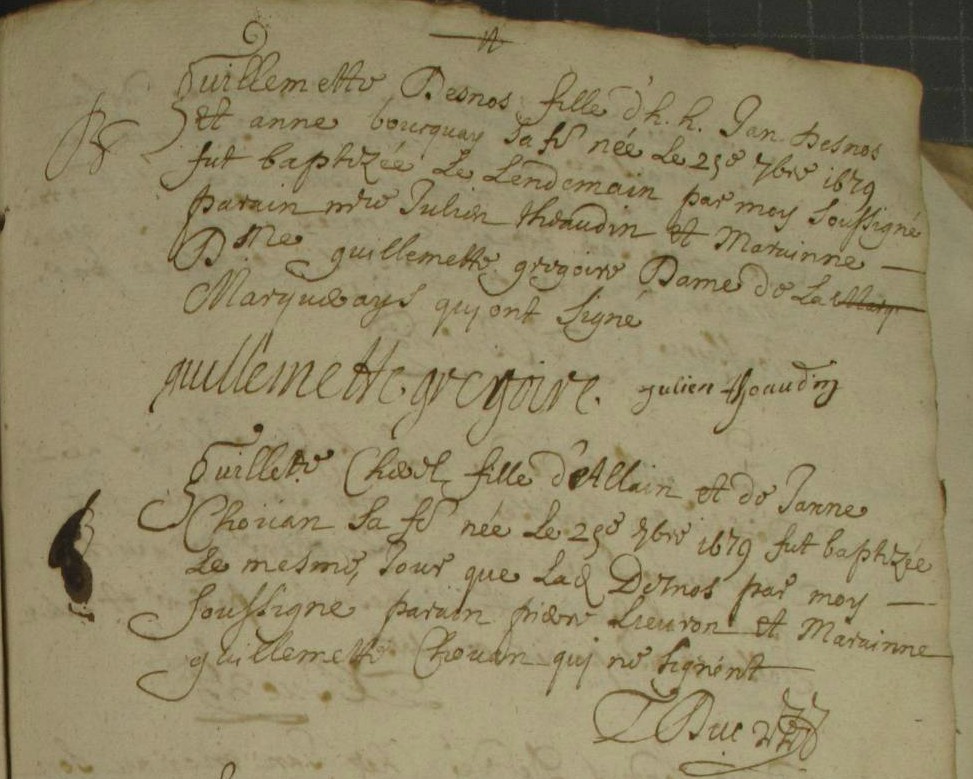 Guillemette Desnos fille d'h. h. Jan Desnos
et anne bourquay sa fe née le 25e 7bre 1679
fut baptizée Le Lendemain par moy soussigné
parain mre Julien theaudin et Marainne
Dme guillemette gregoire Dame de La
Marqueways qui ont signé
guillemette gregoire. julien theaudin
Guillette Chäel fille d'Allain et de Janne
Chouan sa fe née le 25e 7bre 1679 fut baptizée
Le mesme Jour que lad Desnos par moy
soussigne parain pierre Lieuron et Marainne
guillemette Chouan qui ne signent
Duc